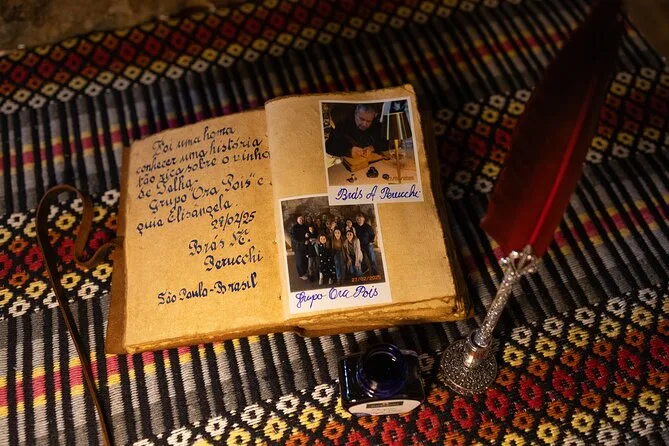 Foi uma honra
conhecer uma história
tão rica sobre o vinho
de Talha
Grupo Ora Pois" e
guia Elisangela
27/02/25
Brás A.
Perucchi
São Paulo-Brasil
Brás A Perucchi
27/02/2025
Grupo Ora Pois